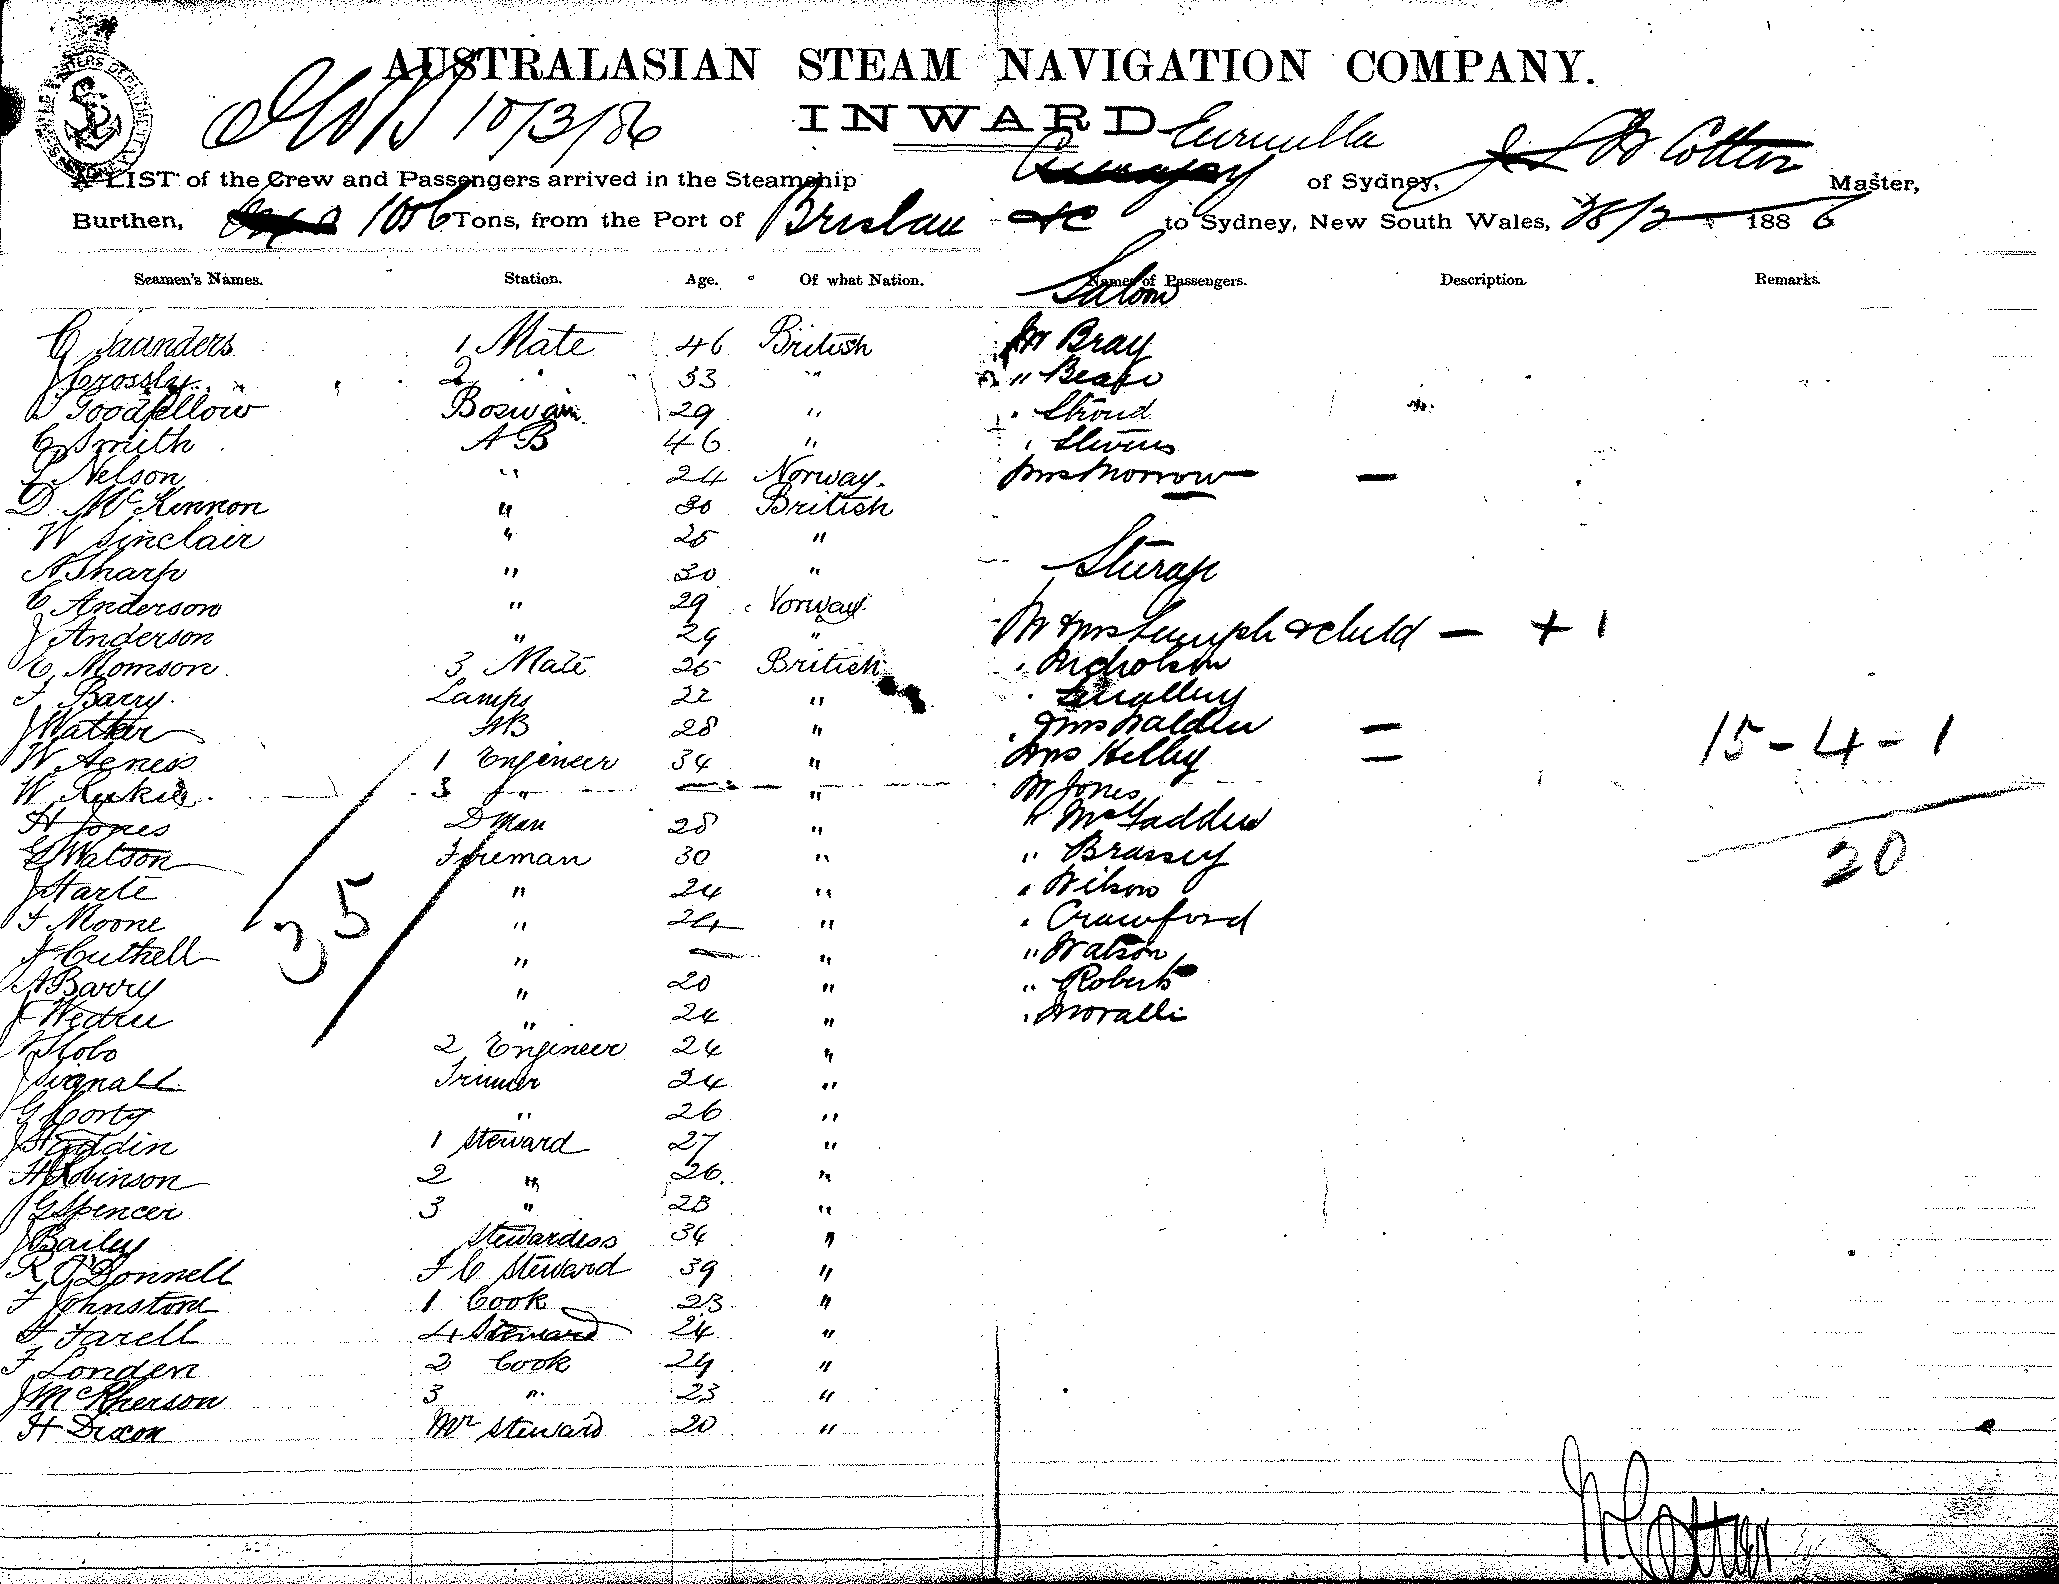 AUSTRALASIAN STEAM NAVIGATION COMPANY.
10/3/86
INWARD
Eurimbla
LIST of the Crew and Passengers arrived in the Steamship of Sydney, W Cotten Master,
Burthen, 1056 Tons, from the Port of Brisbane to Sydney, New South Wales, 28/2 1886
Seamen's Names. Station. Age. Of what Nation. Names of Passengers. Description. Remarks.
Saloon
G Saunders 1 Mate 46 British Mr Bray
J Crossley 2 " 33 "
Goodfellow Boswain 29 " " Stroud
C Smith A B 46 " " Stevens
P Nelson " 24 Norway. Mrs Morrow —
D McKinnon " 30 British
W Sinclair " 25 "
A Sharp " 30 " Sterage
C Anderson " 29 Norway
J Anderson " 29 " Mr & Mrs & child — + 1
C Momson 3 Mate 25 British " Nicholson
F Barry Lamps 22 " " Smalley
J Walker AB 28 " " & Mrs Walden —
W Agness 1 Engineer 34 " Mrs Kelby —
15 - 4 - 1
W 3 " — " Mr Jones
H Jones D Man 28 " " McFadden
G Watson Fireman 30 " " Brassey
20
J Harte " 24 " " Wilson
F Moone " 24 " " Crawford
35
J Cuthell " — " " Watson
A Barry " 20 " " Roberts
J " 24 " " Moralli
2 Engineer 24 "
J Signall Trimer 24 "
G Corty " 26 "
J Haddin 1 Steward 27 "
H Robinson 2 " 26. "
G Spencer 3 " 23 "
J Bailey Stewardess 34 "
R O'Donnell F C Steward 39 "
F Johnstone 1 Cook 23 "
F Farell 4 Steward 24 "
F Londen 2 Cook 29 "
J McPherson 3 " 23 "
H Dixon Mr Steward 20 "
W Cotten